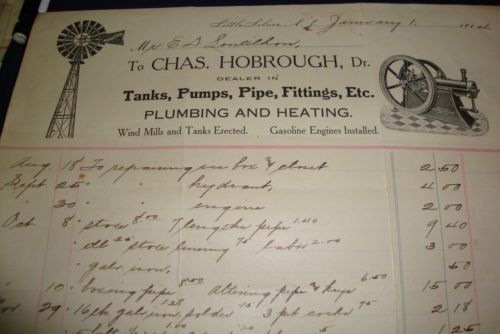 Little Silver N J January 1. 191
Mr E D
To CHAS. HOBROUGH, Dr.
DEALER IN
Tanks, Pumps, Pipe, Fittings, Etc.
PLUMBING AND HEATING.
Wind Mills and Tanks Erected. Gasoline Engines Installed.
Aug 18 To repairing ice box & closet 2 50
Sept 25 " " hydrant, 4 00
30 " " engine 2 00
Oct 8 " stove 8.00 7 lengths pipe 1.40 9 40
" stove lining 75 labor 2.00 3 00
" galv. iron. 50
" 10 " pipe 8.50 Altering pipe & 6.50 15 00
Nov. 29 " 16 lb galv. iron, solder 3 pet cocks 75 2 18
1.25